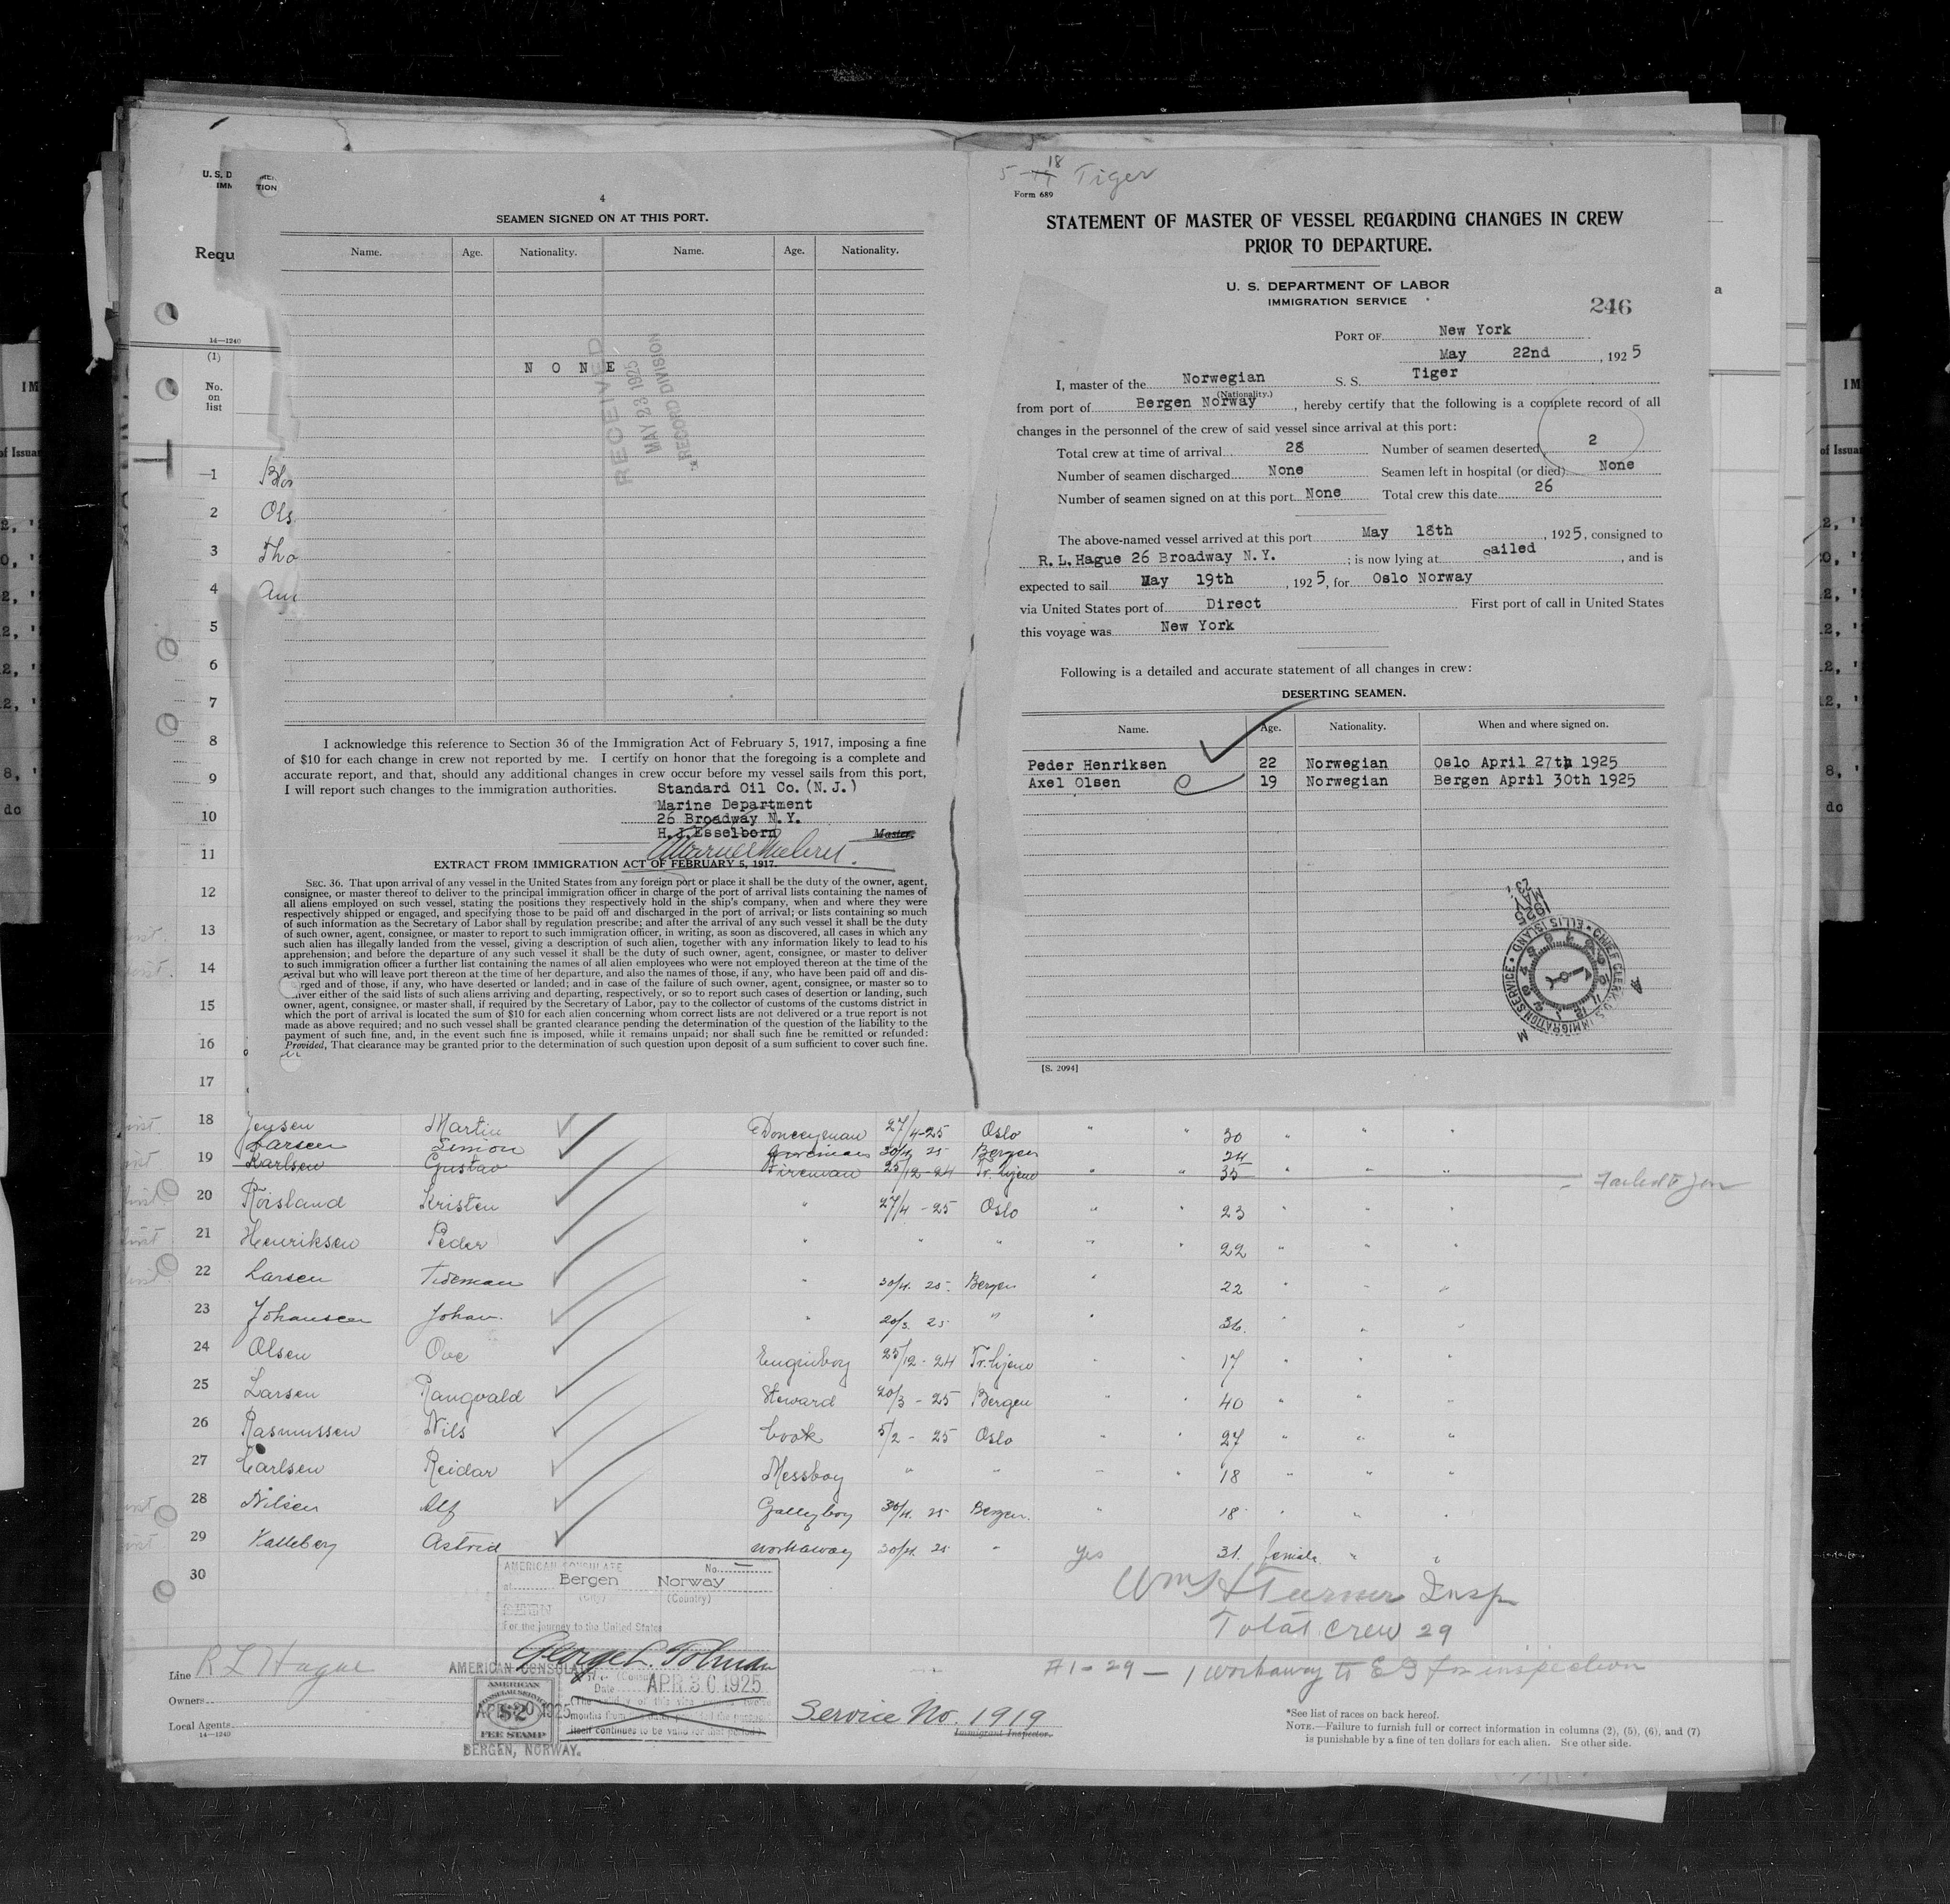 4
SEAMEN SIGNED ON AT THIS PORT.
Name. Age. Nationality. Name. Age. Nationality.
N O N E
RECEIVED
MAY 23 1925
RECORD DIVISION
I acknowledge this reference to Section 36 of the Immigration Act of February 5, 1917, imposing a fine
of $10 for each change in crew not reported by me. I certify on honor that the foregoing is a complete and
accurate report, and that, should any additional changes in crew occur before my vessel sails from this port,
I will report such changes to the immigration authorities. Standard Oil Co.(N.J.)
Marine Department
26 Broadway N.Y.
H.J.Esselborn Master.
EXTRACT FROM IMMIGRATION ACT OF FEBRUARY 5, 1917.
SEC. 36. That upon arrival of any vessel in the United States from any foreign port or place it shall be the duty of the owner, agent,
consignee, or master thereof to deliver to the principal immigration officer in charge of the port of arrival lists containing the names of
all aliens employed on such vessel, stating the positions they respectively hold in the ship's company, when and where they were
respectively shipped or engaged, and specifying those to be paid off and discharged in the port of arrival; or lists containing so much
of such information as the Secretary of Labor shall by regulation prescribe; and after the arrival of any such vessel it shall be the duty
of such owner, agent, consignee, or master to report to such immigration officer, in writing, as soon as discovered, all cases in which any
such alien has illegally landed from the vessel, giving a description of such alien, together with any information likely to lead to his
apprehension; and before the departure of any such vessel it shall be the duty of such owner, agent, consignee, or master to deliver
to such immigration officer a further list containing the names of all alien employees who were not employed thereon at the time of the
arrival but who will leave port thereon at the time of her departure, and also the names of those, if any, who have been paid off and dis-
rged and of those, if any, who have deserted or landed; and in case of the failure of such owner, agent, consignee, or master so to
liver either of the said lists of such aliens arriving and departing, respectively, or so to report such cases of desertion or landing, such
owner, agent, consignee, or master shall, if required by the Secretary of Labor, pay to the collector of customs of the customs district in
which the port of arrival is located the sum of $10 for each alien concerning whom correct lists are not delivered or a true report is not
made as above required; and no such vessel shall be granted clearance pending the determination of the question of the liability to the
payment of such fine, and, in the event such fine is imposed, while it remains unpaid; nor shall such fine be remitted or refunded:
Provided, That clearance may be granted prior to the determination of such question upon deposit of a sum sufficient to cover such fine.
5-18 Tiger
Form 689
STATEMENT OF MASTER OF VESSEL REGARDING CHANGES IN CREW
PRIOR TO DEPARTURE.
U. S. DEPARTMENT OF LABOR
IMMIGRATION SERVICE
246
PORT OF New York
May 22nd, 1925
I, master of the Norwegian S. S. Tiger
(Nationality.)
from port of Bergen Norway, hereby certify that the following is a complete record of all
changes in the personnel of the crew of said vessel since arrival at this port:
Total crew at time of arrival 28 Number of seamen deserted 2
Number of seamen discharged None Seamen left in hospital (or died) None
Number of seamen signed on at this port None Total crew this date 26
The above-named vessel arrived at this port May 18th, 1925, consigned to
R.L.Hague 26 Broadway N.Y.; is now lying at sailed, and is
expected to sail May 19th, 1925, for Oslo Norway
via United States port of Direct First port of call in United States
this voyage was New York
Following is a detailed and accurate statement of all changes in crew:
DESERTING SEAMEN.
Name. Age. Nationality. When and where signed on.
Peder Henriksen 22 Norwegian Oslo April 27th 1925
Axel Olsen 19 Norwegian Bergen April 30th 1925
CHIEF CLERK U.S. IMMIGRATION SERVICE ELLIS ISLAND
1925 MAY 23
[S. 2094]
U. S. D
IMM TION
Requ
14—1240
(1)
No.
on
list
1
2 Ols
3 Tho
4
5
6
7
8
9
10
11
12
13
14
15
16
17
18 Jensen Martin Donkeyman 27/4-25 Oslo " " 30 " " "
Larsen Simon Fireman 30/4 25 Bergen 24
19 Karlsen Gustav Fireman 25/12-24 Tr.hjem " " 35 " " " Failed to Join
20 Röisland Kristen " 27/4-25 Oslo " " 23 " " "
21 Henriksen Peder " " " " " 22 " " "
22 Larsen Tideman " 30/4. 25. Bergen " 22 " " "
23 Johansen Johan. " 20/3. 25 " " 36. " " "
24 Olsen Ove Enginboy 25/12-24 Tr.hjem " " 17 " " "
25 Larsen Rangvald Steward 20/3-25 Bergen " " 40 " " "
26 Rasmussen Nils Cook 5/2-25 Oslo " " 27 " " "
27 Carlsen Reidar Messboy " " " " 18 " " "
28 Nilsen Alf Galleyboy 30/4. 25 Bergen. " 18 " " "
29 Kalleberg Astrid workaway 30/4. 25 " yes 31. female " "
30
AMERICAN CONSULATE No.
at Bergen Norway
(City) (Country)
SEEN
For the journey to the United States
George L. Tolman
Date APR 30 1925
AMERICAN CONSULATE
APR 30 1925
BERGEN, NORWAY.
AMERICAN
CONSULAR SERVICE
$2
FEE STAMP
Wm H Turner Insp
Total Crew 29
#1-29 — 1 workaway to EI for inspection
Line R L Hague
Owners
Local Agents
14—1240
Service No. 1919
Immigrant Inspector.
*See list of races on back hereof.
NOTE.—Failure to furnish full or correct information in columns (2), (5), (6), and (7)
is punishable by a fine of ten dollars for each alien. See other side.